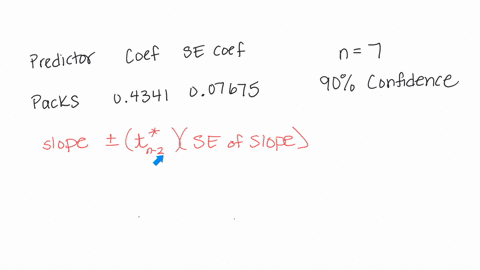 Predictor Coef SE Coef
Packs 0.4341 0.07675
n = 7
90% Confidence
slope ± (t*n-2)(SE of slope)